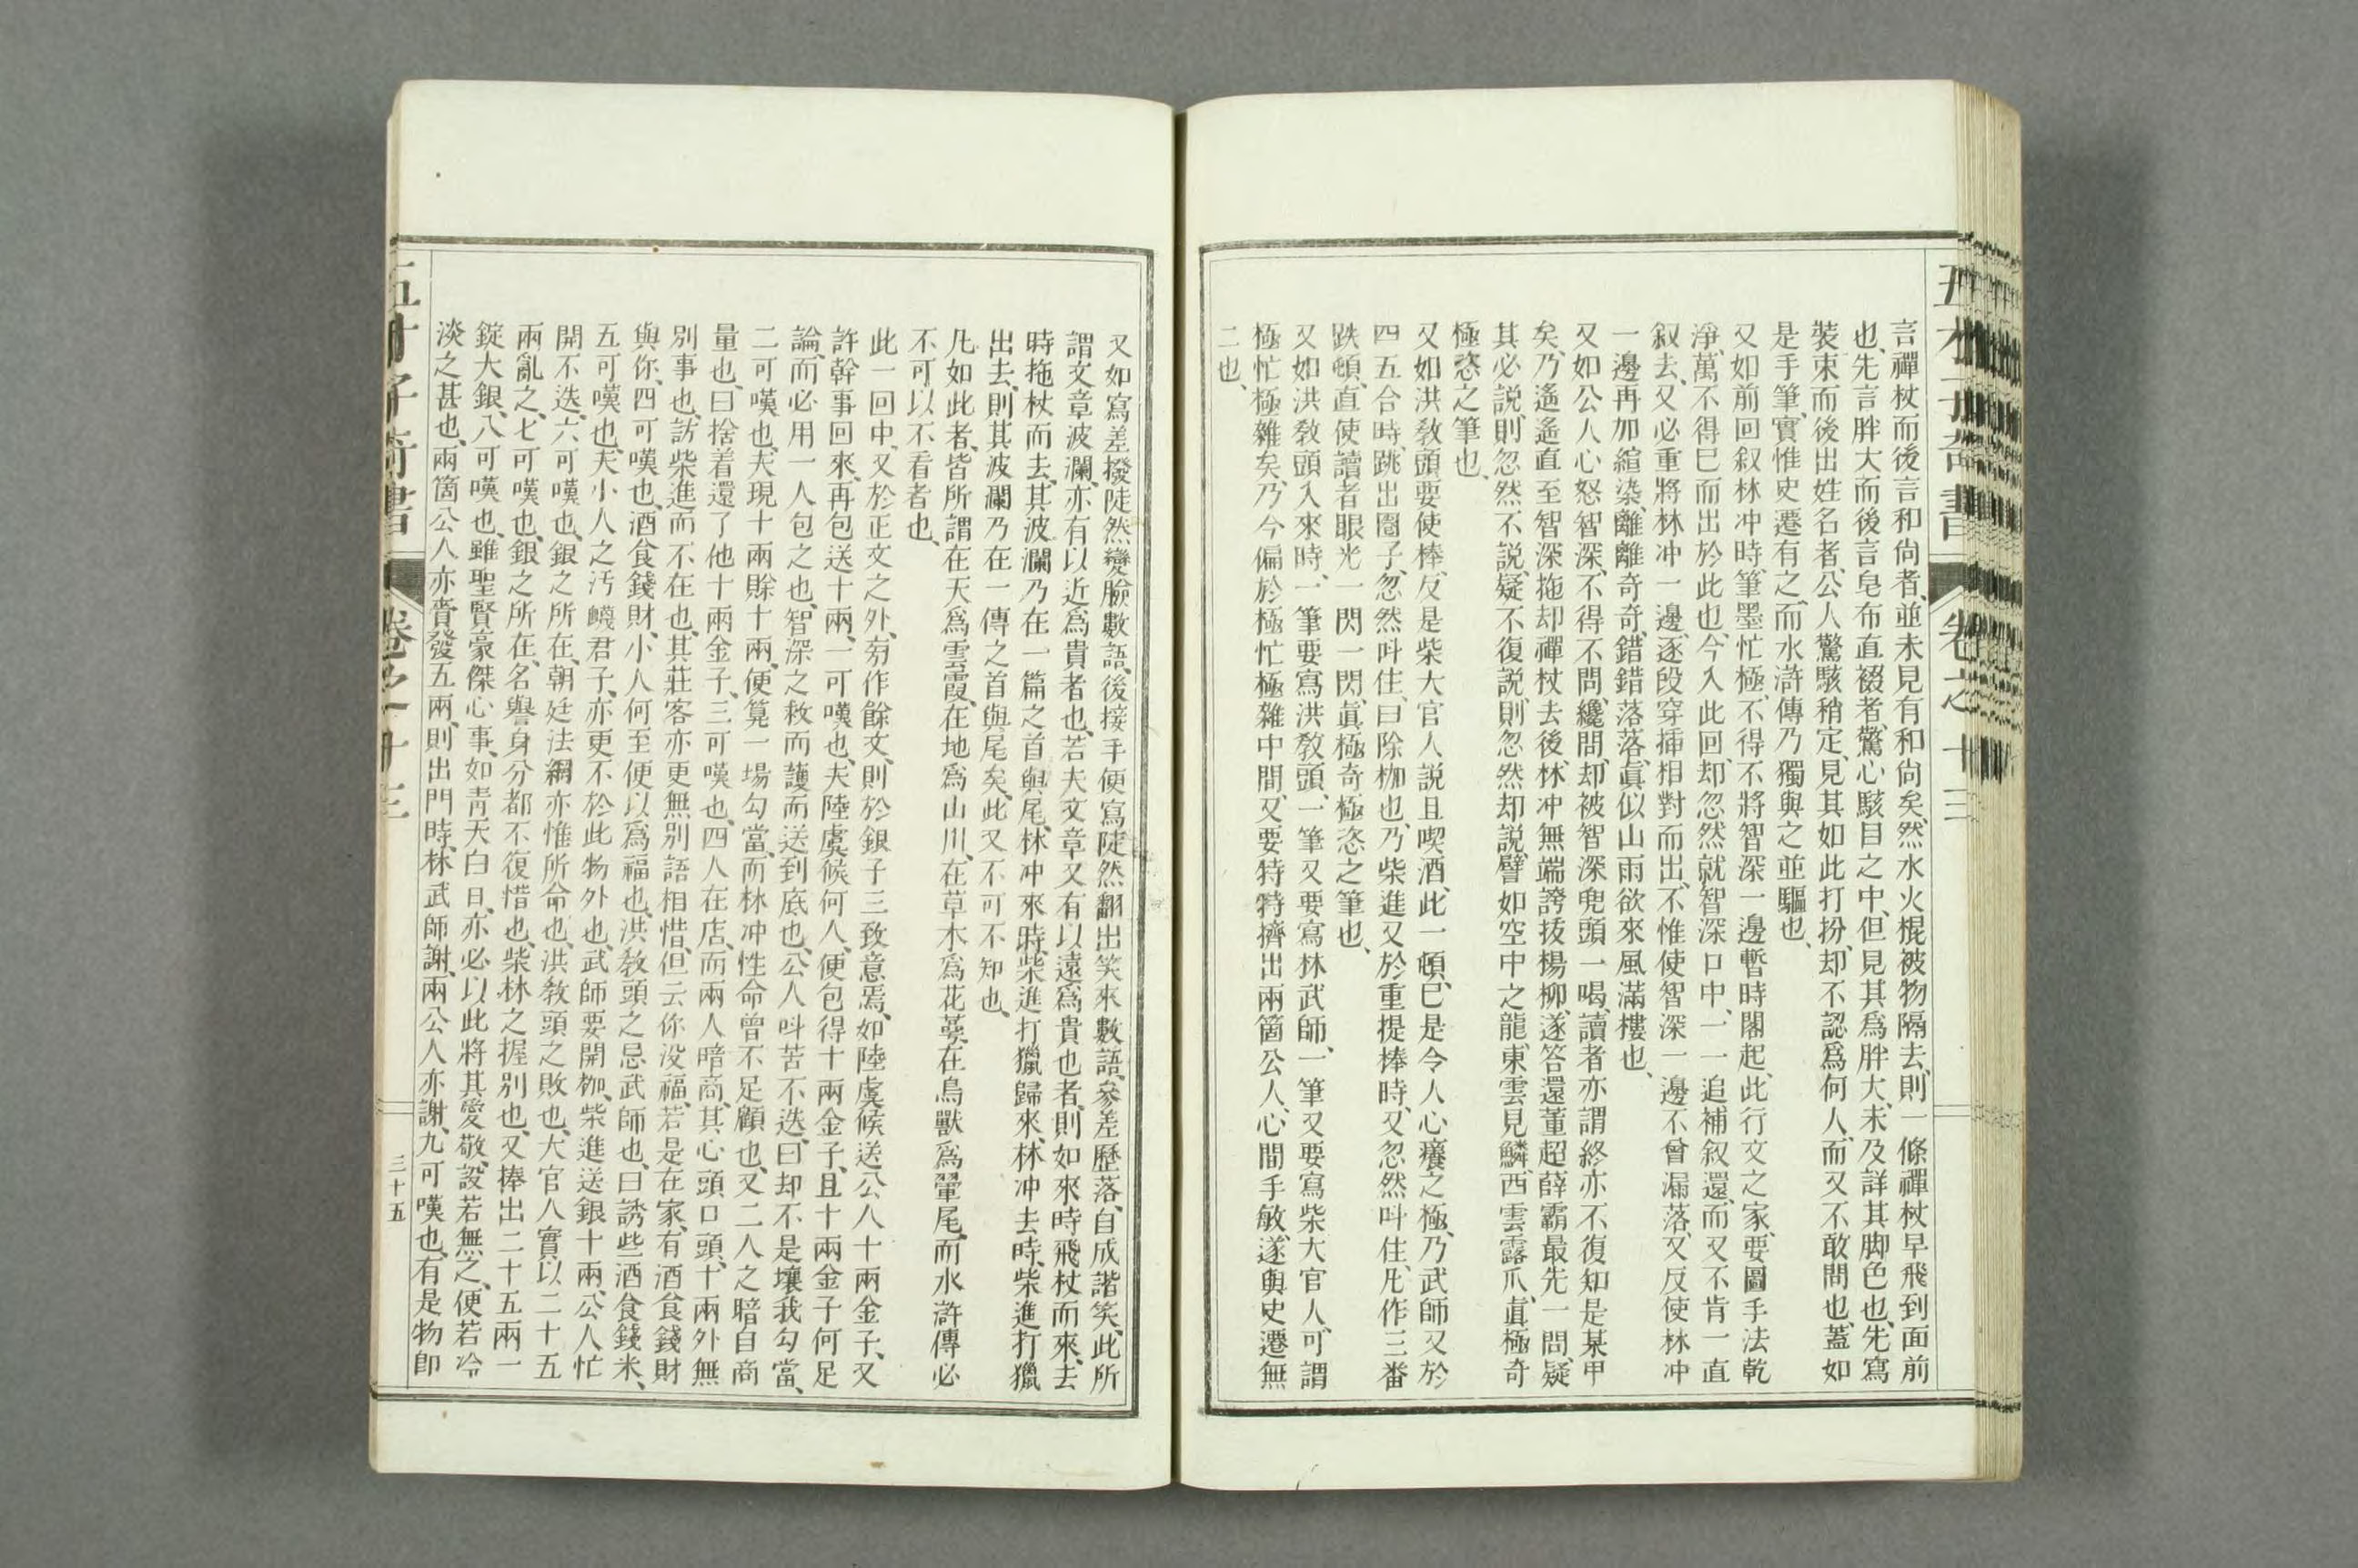 五才子奇書 卷之十三
言禪杖而後言和尙者、並未見有和尙矣、然水火棍被物隔去、則一條禪杖早飛到面前
也、先言胖大而後言皂布直裰者、驚心駭目之中、但見其爲胖大、未及詳其脚色也、先寫
裝束而後出姓名者、公人驚駭稍定、見其如此打扮、却不認爲何人、而又不敢問也、蓋如
是手筆、實惟史遷有之、而水滸傳乃獨與之並驅也、
又如前回叙林冲時、筆墨忙極、不得不將智深一邊暫時閣起、此行文之家、要圖手法乾
淨、萬不得已而出於此也、今入此回、却忽然就智深口中、一一追補叙還、而又不肯一直
叙去、又必重將林冲一邊、逐段穿揷相對而出、不惟使智深一邊不曾漏落、又反使林冲
一邊再加縇染、離離奇奇、錯錯落落、眞似山雨欲來風滿樓也、
又如公人心怒智深、不得不問、纔問、却被智深兜頭一喝、讀者亦謂終亦不復知是某甲
矣、乃遙遙直至智深拖却禪杖去後、林冲無端誇拔楊柳、遂答還董超薛霸最先一問、疑
其必説、則忽然不説、疑不復説、則忽然却説、譬如空中之龍、東雲見鱗、西雲露爪、眞極奇
極恣之筆也、
又如洪敎頭要使棒、反是柴大官人說且喫酒、此一頓、已是令人心癢之極、乃武師又於
四五合時、跳出圈子、忽然呌住、曰除枷也、乃柴進又於重提棒時、又忽然呌住、凡作三番
跌頓、直使讀者眼光一閃一閃、眞極奇極恣之筆也、
又如洪敎頭入來時、一筆要寫洪敎頭、一筆又要寫林武師、一筆又要寫柴大官人、可謂
極忙極雜矣、乃今偏於極忙極雜中間、又要特特擠出兩箇公人、心閒手敏、遂與史遷無
二也、
又如寫差撥陡然變臉數語、後接手便寫陡然翻出笑來數語、參差歷落、自成諧笑、此所
謂文章波瀾、亦有以近爲貴者也、若夫文章又有以遠爲貴也者、則如來時飛杖而來、去
時拖杖而去、其波瀾乃在一篇之首與尾、林冲來時、柴進打獵歸來、林冲去時、柴進打獵
出去、則其波瀾乃在一傳之首與尾矣、此又不可不知也、
凡如此者、皆所謂在天爲雲霞、在地爲山川、在草木爲花萼、在鳥獸爲翬尾、而水滸傳必
不可以不看者也、
此一回中、又於正文之外、旁作餘文、則於銀子三致意焉、如陸虞候送公人十兩金子、又
許幹事回來、再包送十兩、一可嘆也、夫陸虞候何人、便包得十兩金子、且十兩金子何足
論、而必用一人包之也、智深之救而護而送到底也、公人呌苦不迭、曰却不是壞我勾當、
二可嘆也、夫現十兩賒十兩、便筭一場勾當、而林冲性命曾不足顧也、又二人之暗自商
量也、曰捨着還了他十兩金子、三可嘆也、四人在店、而兩人暗商、其心頭口頭、十兩外無
別事也、訪柴進而不在也、其莊客亦更無別語相惜、但云你沒福、若是在家、有酒食錢財
與你、四可嘆也、酒食錢財、小人何至便以爲福也、洪敎頭之忌武師也、曰誘些酒食錢米、
五可嘆也、夫小人之汚衊君子、亦更不於此物外也、武師要開枷、柴進送銀十兩、公人忙
開不迭、六可嘆也、銀之所在、朝廷法綱亦惟所命也、洪敎頭之敗也、大官人實以二十五
兩亂之、七可嘆也、銀之所在、名譽身分都不復惜也、柴林之握別也、又捧出二十五兩一
錠大銀、八可嘆也、雖聖賢豪傑心事、如靑天白日、亦必以此將其愛敬、設若無之、便若冷
淡之甚也、兩箇公人亦賫發五兩、則出門時、林武師謝、兩公人亦謝、九可嘆也、有是物卽
五才子奇書 卷之十三 三十五